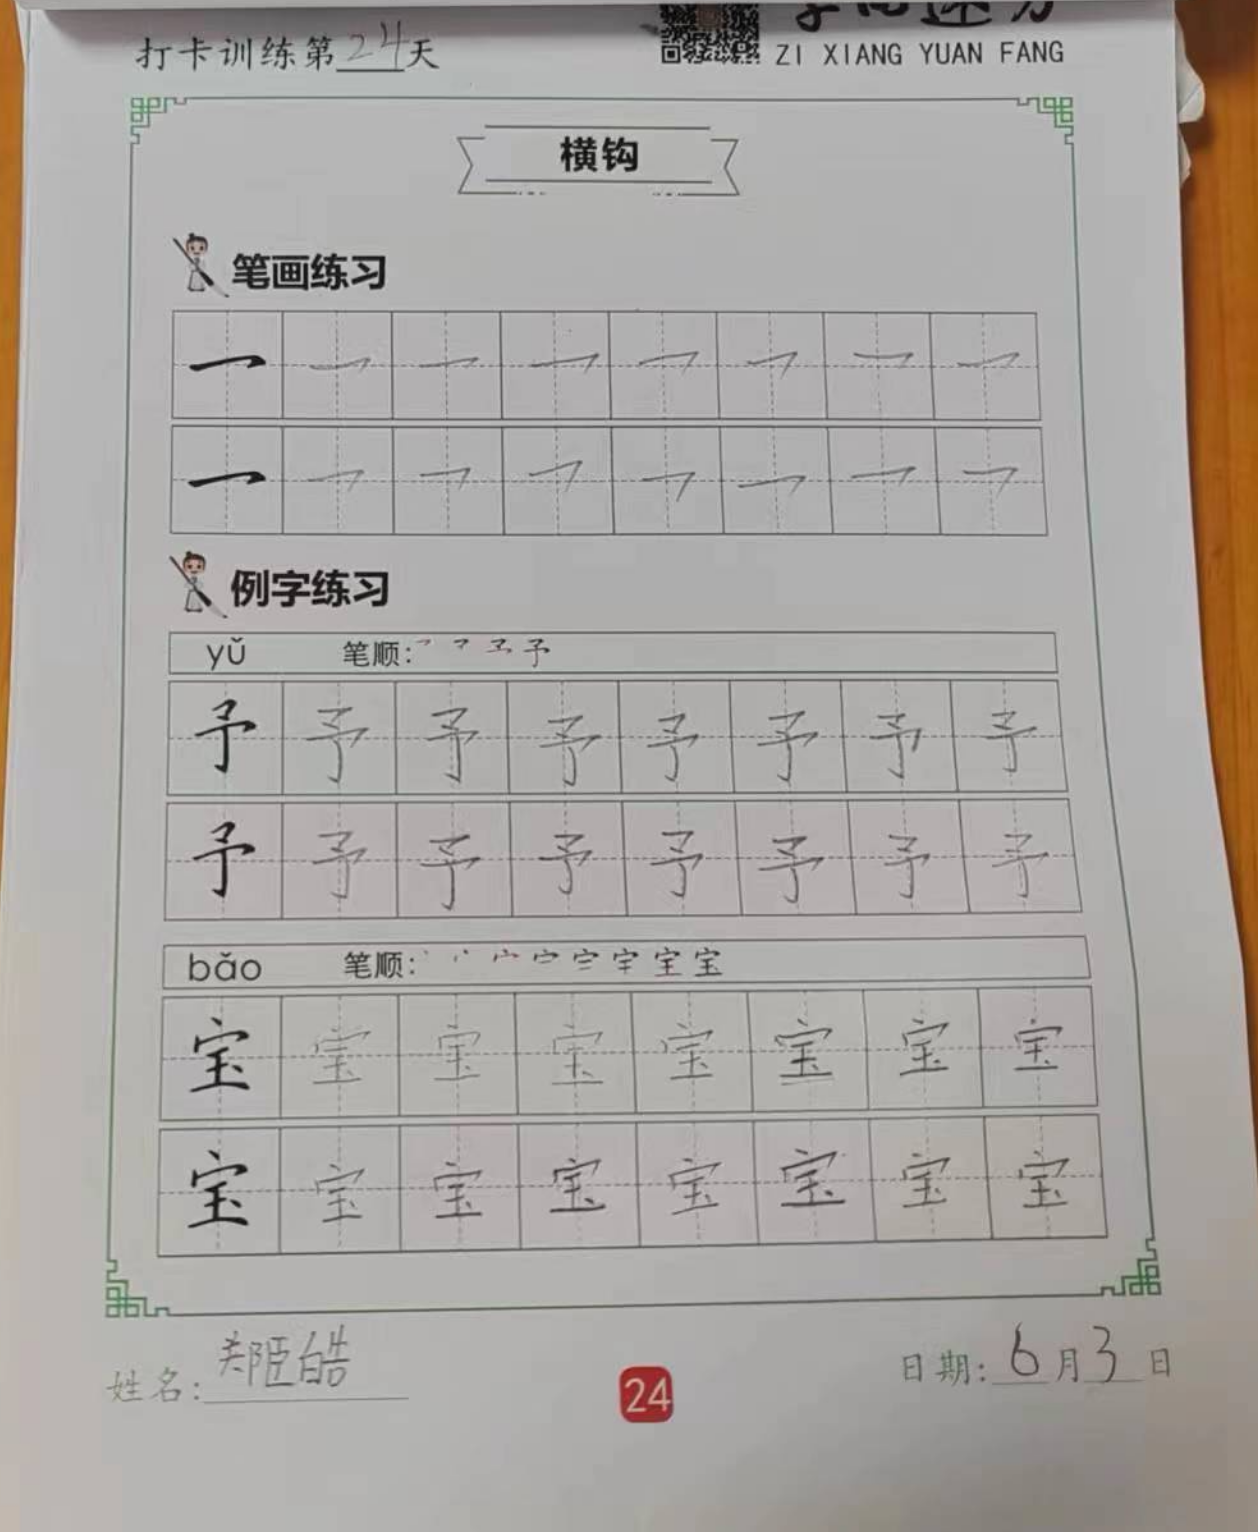 打卡训练第24天
ZI XIANG YUAN FANG
横钩
笔画练习
例字练习
yǔ 笔顺:
予 予 予 予 予 予 予 予
予 予 予 予 予 予 予 予
bǎo 笔顺:
宝 宝 宝 宝 宝 宝 宝 宝
宝 宝 宝 宝 宝 宝 宝 宝
姓名: 日期: 6月3日
24